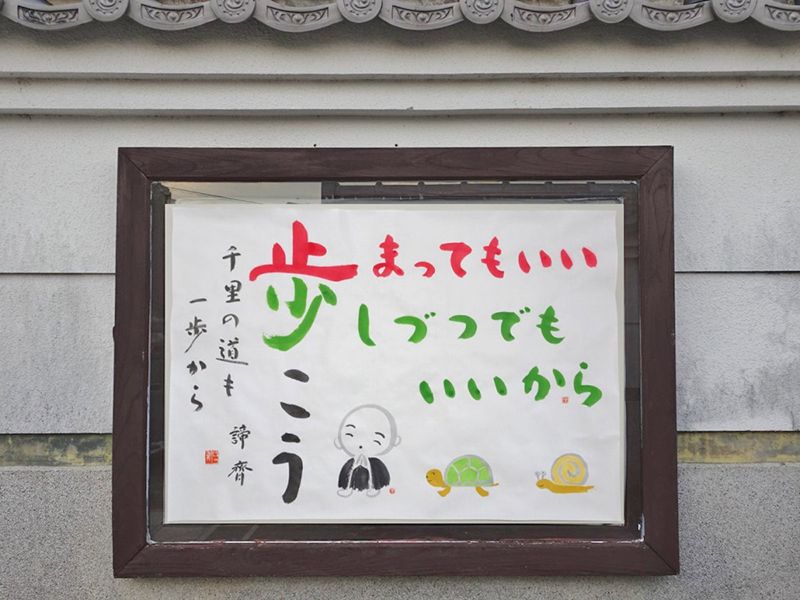 止まってもいい
少しづつでも
いいから
歩こう
千里の道も
一歩から
諦齊